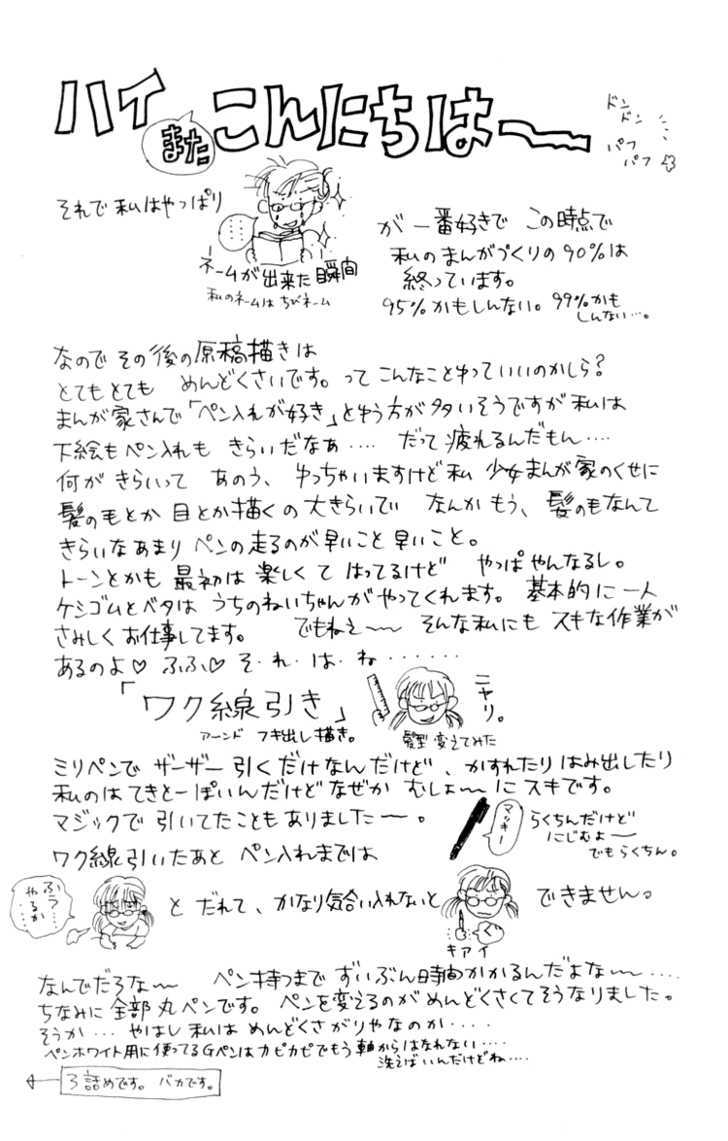 ハイ
また
こんにちは〜
ドン
ドン
パフ
パフ
それで私はやっぱり
ネームが出来た瞬間
私のネームは ちびネーム
が一番好きで この時点で
私のまんがづくりの90%は
終っています。
95%かもしんない。99%かも
しんない…。
なので その後の原稿描きは
とてもとても めんどくさいです。って こんなことゆっていいのかしら?
まんが家さんで「ペン入れが好き」とゆう方が多いそうですが私は
下絵もペン入れも きらいだなあ‥‥ だって疲れるんだもん‥‥
何がきらいって あのう、 ゆっちゃいますけど私 少女まんが家のくせに
髪の毛とか目とか描くの大きらいで なんかもう、髪の毛なんて
きらいなあまり ペンの走るのが早いこと早いこと。
トーンとかも 最初は 楽しくて はってるけど やっぱ やんなるし。
ケシゴムとベタは うちのねいちゃんがやってくれます。 基本的に一人
さみしくお仕事してます。 でもねえ〜〜 そんな私にも スキな作業が
あるのよ♡ ふふ♡ そ・れ・は・ね・・・・・・
「ワク線引き」
アーンド フキ出し描き。
ニヤリ。
髪型 変えてみた
ミリペンで ザーザー 引くだけなんだけど、かすれたり はみ出したり
私のは てきとーぽいんだけど なぜか むしょ〜に スキです。
マジックで 引いてたこともありました〜。
マッキー
らくちんだけど
にじむよー
でもらくちん。
ワク線引いたあと ペン入れまでは
ふう‥
やるか‥
と だれて、かなり気合い入れないと
キアイ
できません。
なんでだろな〜 ペン持つまで ずいぶん時間かかるんだよな〜‥‥
ちなみに 全部丸ペンです。 ペンを変えるのが めんどくさくて そうなりました。
そうか… やはし 私は めんどくさがりやなのか‥‥
ペンホワイト用に使ってるGペンは カピカピでもう 軸からはなれない‥‥
洗えばいんだけどね‥‥
3詰めです。 バカです。